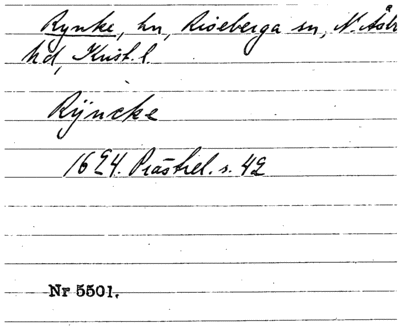 Rynke, hn, Riseberga sn, N. Åsb
hd, Krist. l.
Rÿncke
1624. Prästrel. s. 42
Nr 5501.